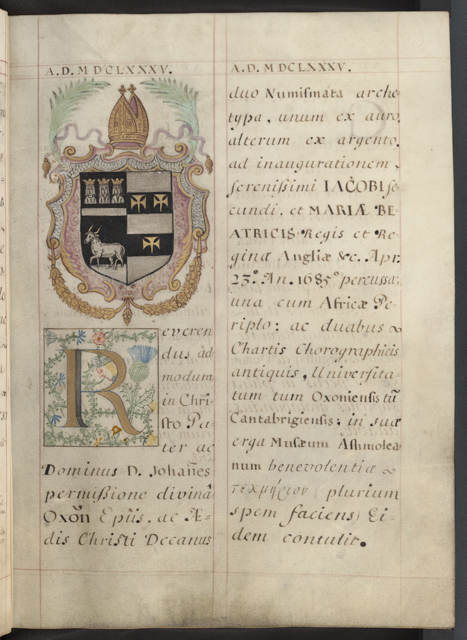 A.D. MDCLXXXV.
R
everen
dus ad
modum
in Chri
sto Pa
ter ac
Dominus D. Johañes
permißione divinâ
Oxoñ Epũs. ac Æ-
dis Christi Decanus
A.D. MDCLXXXV.
duo Numismata arche
typa, unum ex auro,
alterum ex argento,
ad inaugurationem
serenissimi IACOBI se
cundi, et MARIÆ BE-
ATRICIS Regis et Re
ginæ Angliæ &c. Apr.
23º. An. 1685º percussa;
una cum Africæ Pe-
riplo: ac duabus
Chartis Chorographicis
antiquis, Universita-
tum tum Oxoniensis tũ
Cantabrigiensis; in suæ
erga Musæum Ashmolea-
num benevolentiæ
τεκμήριον (plurium
spem faciens) Ei-
dem contulit.